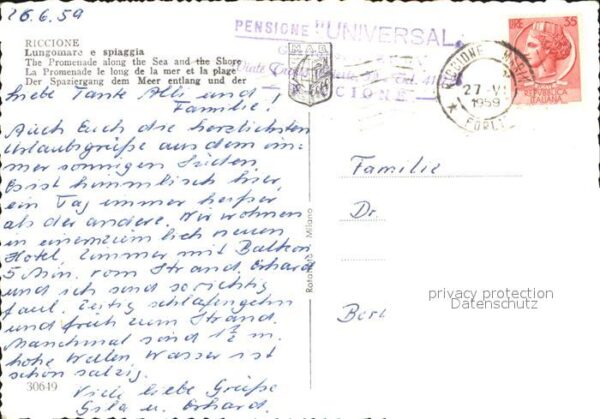 26.6.59
PENSIONE "UNIVERSAL"
RICCIONE
LIRE 35
RICCIONE MARINA
27-VI
1959
FORLI
REPVBBLICA
ITALIANA
RICCIONE
Lungomare e spiaggia
The Promenade along the Sea and the Shore
La Promenade le long de la mer et la plage
Der Spaziergang dem Meer entlang und der
Liebe Tante Alli und
Familie!
Auch Euch die herzlichsten
Urlaubsgrüße aus dem im-
mer sonnigen Süden.
Es ist himmlisch hier,
ein Tag immer heißer
als der andere. Wir wohnen
in einem ziemlich neuen
Hotel, Zimmer mit Balkon
5 Min. vom Strand. Erhard
und ich sind so richtig
faul. Zeitig schlafengehn
und früh zum Strand.
Manchmal sind 1½ m.
hohe Wellen. Wasser ist
schön salzig.
Viele liebe Grüße
Gila u. Erhard
30649
Milano
Familie
Dr.
Berl
privacy protection
Datenschutz